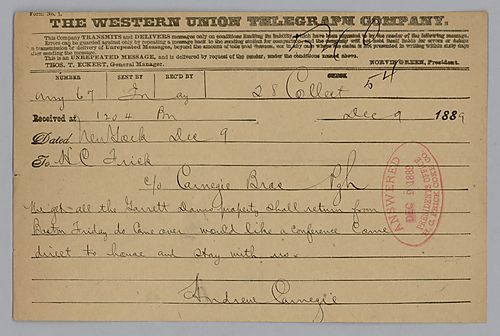 Form No. 1.
THE WESTERN UNION TELEGRAPH COMPANY.
This Company TRANSMITS and DELIVERS messages only on conditions limiting its liability, which have been assented to by the sender of the following message.
Errors can be guarded against only by repeating a message back to the sending station for comparison, and the company will not hold itself liable for errors or delays
in transmission or delivery of Unrepeated Messages, beyond the amount of tolls paid thereon, nor in any case where the claim is not presented in writing within sixty days
after sending the message.
This is an UNREPEATED MESSAGE, and is delivered by request of the sender, under the conditions named above.
THOS. T. ECKERT, General Manager. NORVIN GREEN, President.
NUMBER SENT BY REC'D BY CHECK
67 28 Collect
54
Received at 1204 Pm Dec 9 1889
Dated New York Dec 9
To H C Frick
c/o Carnegie Bros Pgh
We get all the Garrett property shall return from
Friday do come over would like a conference Come
direct to house and stay with us.
Andrew Carnegie
ANSWERED
DEC 9 1889
PRESIDENT'S OFFICE
H. C. FRICK COKE CO.